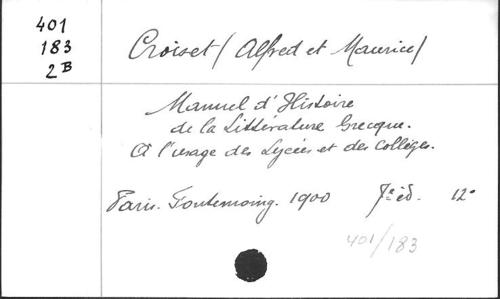 401
183
2B
Croiset (Alfred et Maurice)
Manuel d'Histoire
de la Littérature Grecque.
à l'usage des Lycées et des Collèges.
Paris. Fontemoing. 1900 7e éd. 12°
401/183